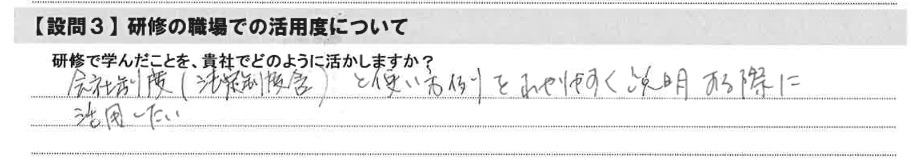 【設問3】研修の職場での活用度について
研修で学んだことを、貴社でどのように活かしますか?
会社制度(法定制度含)と使い方例をわかりやすく説明する際に
活用したい